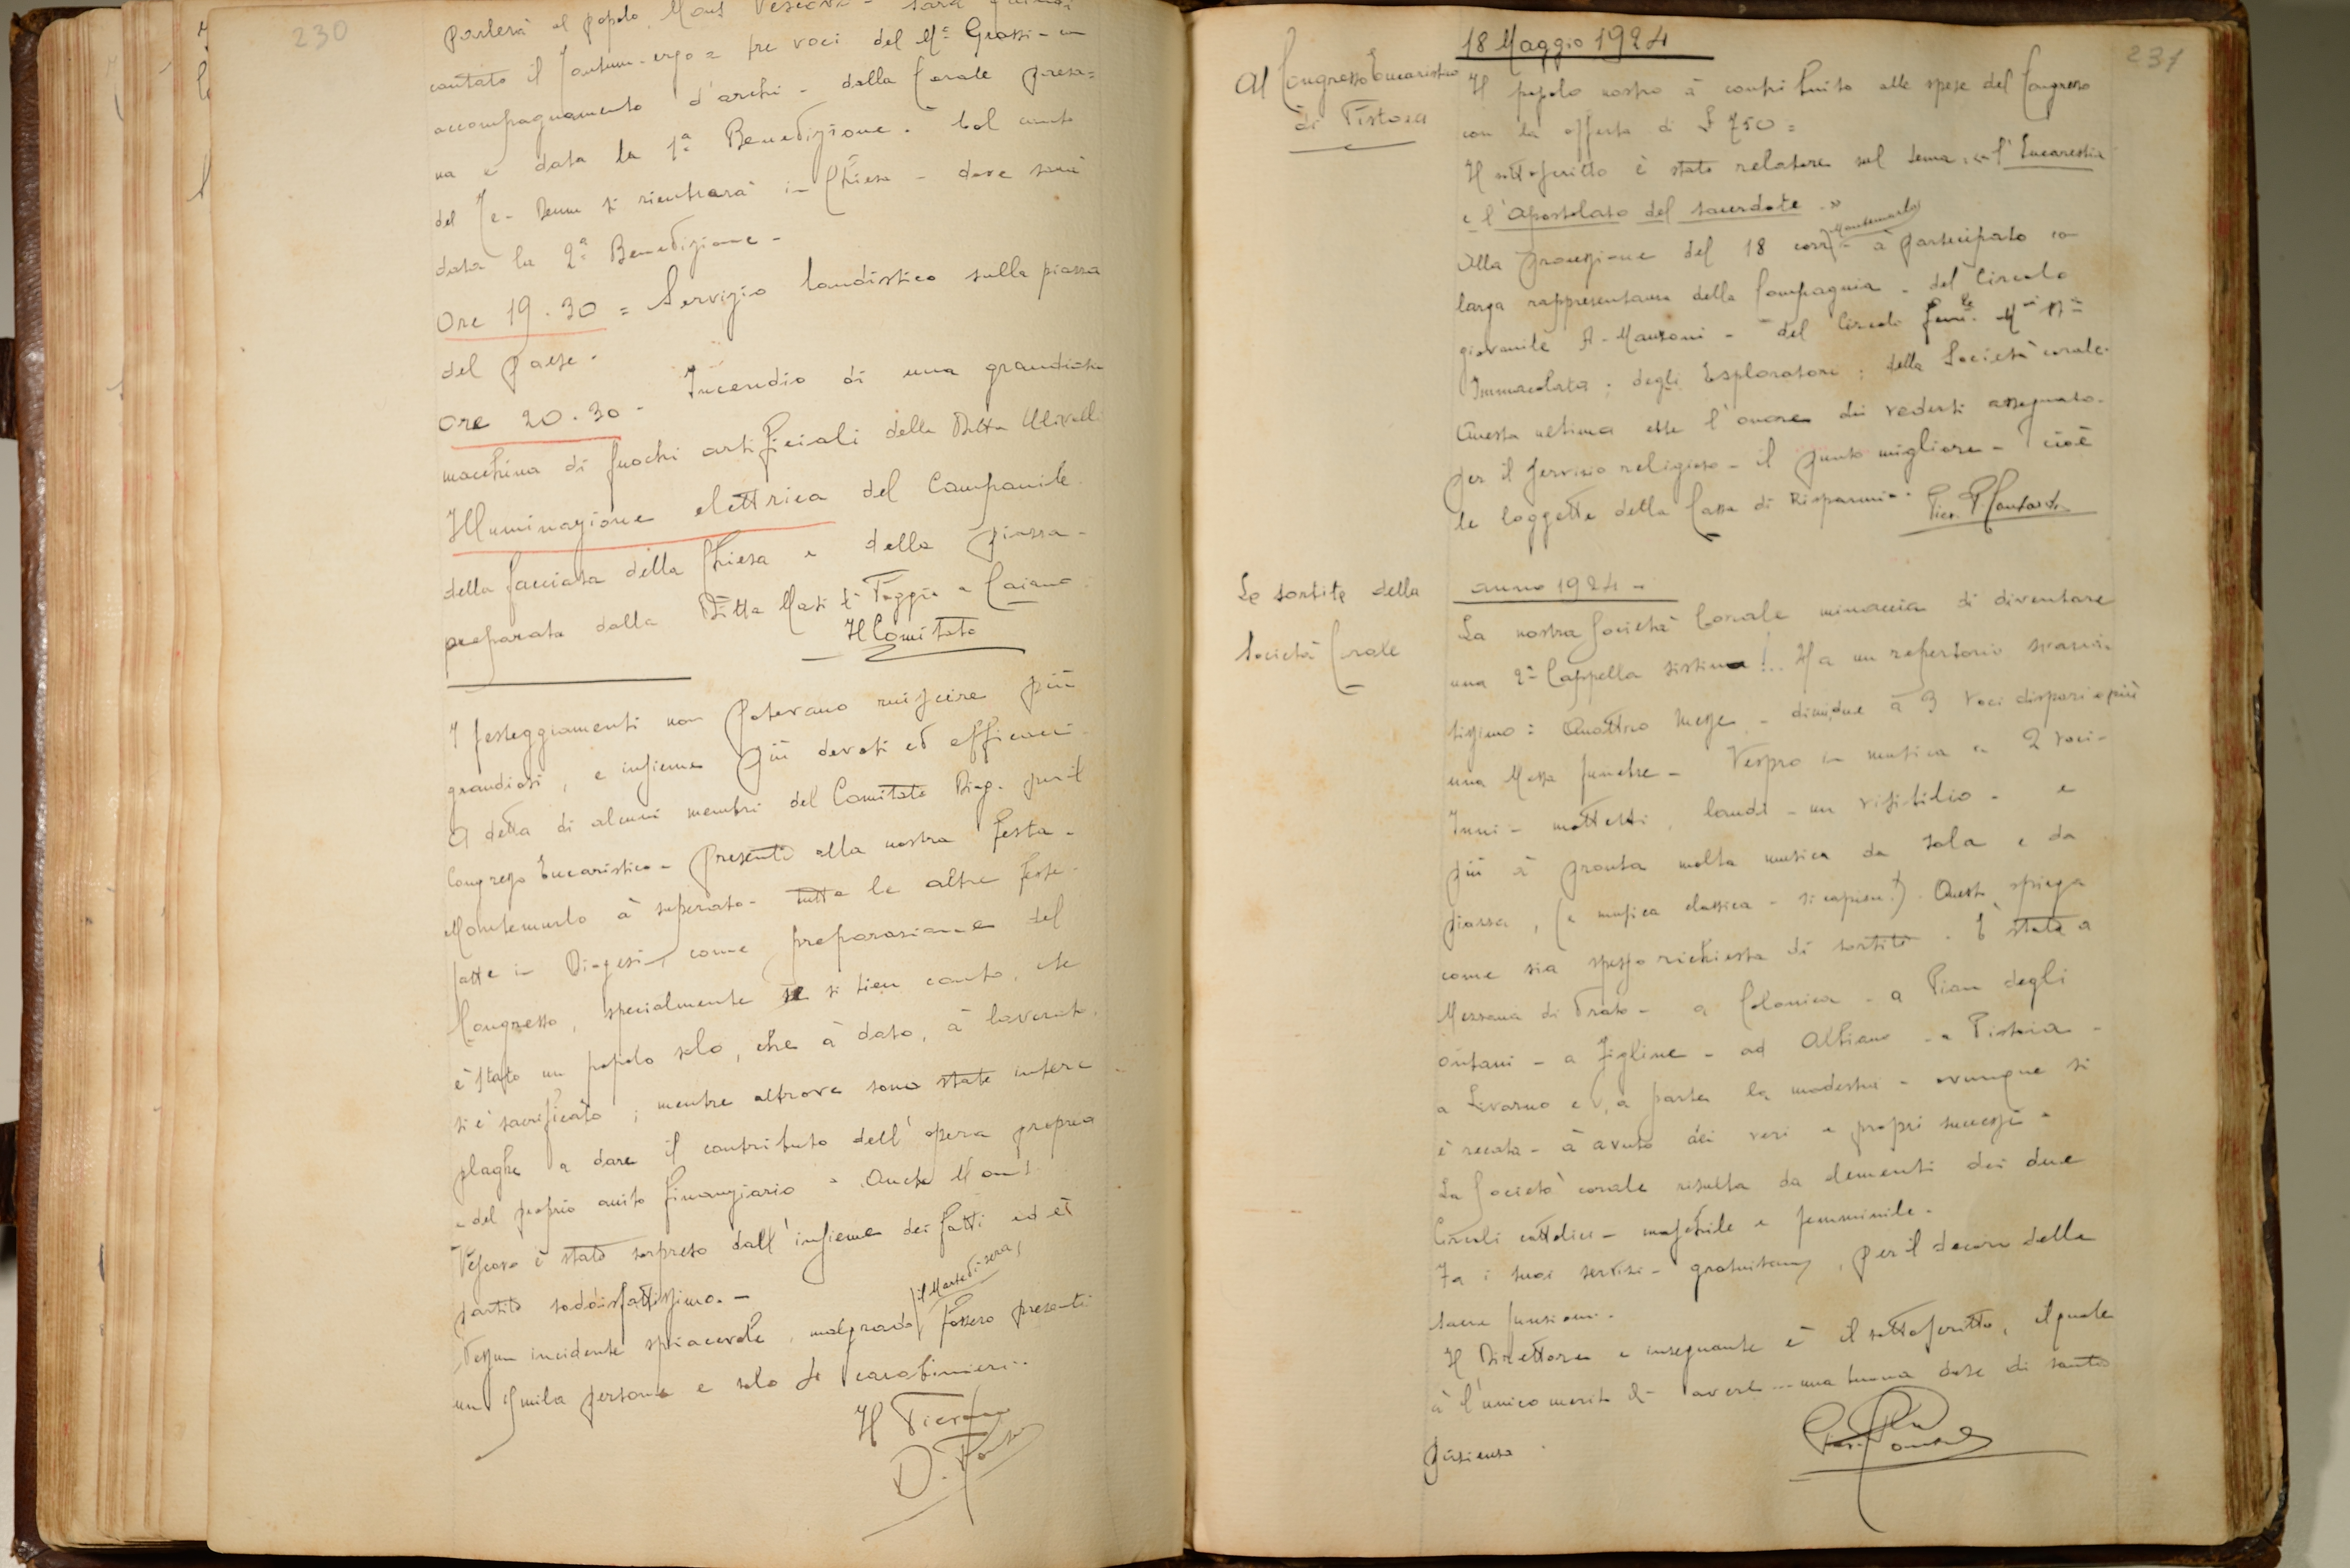 230
parlerà al popolo Mons Vescovo - sarà quindi
cantato il Tantum-ergo a tre voci del Mº Grassi - con
accompagnamento d'archi - dalla Corale presa=
na e data la 1ª Benedizione. Col canto
del Te-Deum si rientrerà in Chiesa - dove sarà
data la 2ª Benedizione -
Ore 19.30 = Servizio bandistico sulla piazza
del paese.
Ore 20.30 - Incendio di una grandiosa
macchina di fuochi artificiali della Ditta
Illuminazione elettrica del Campanile
della facciata della Chiesa e della piazza -
preparata dalla Ditta Masi di Poggio a Caiano.
Il Comitato
I festeggiamenti non potevano riuscire più
grandiosi, e insieme più devoti ed efficaci.
A detta di alcuni membri del Comitato Dioc. per il
Congresso Eucaristico - presenti alla nostra festa -
Montemurlo à superato - tutte le altre feste -
fatte in Diogesi, come preparazione del
Congresso, specialmente se si tien conto, che
è stato un popolo solo, che à dato, à lavorato,
si è sacrificato; mentre altrove sono state intere
plaghe a dare il contributo dell'opera propria
e del proprio aiuto finanziario. Anche Mons.
Vescovo è stato sorpreso dall'insieme dei fatti ed è
partito soddisfattissimo. -
Nessun incidente spiacevole, malgrado il Martedì sera, fossero presenti
un mila persone e solo carabinieri..
Il Pievano
D.
231
18 Maggio 1924
Al Congresso Eucaristico
di Pistoia
Il popolo nostro à contribuito alle spese del Congresso
con la offerta di £ 750 =
Il sottoscritto è stato relatore sul tema: «l'Eucarestia
e l'Apostolato del sacerdote -»
Alla processione del 18 corr. Montemurlo à partecipato con
larga rappresentanza della Compagnia - del Circolo
giovanile A. Manzoni - del Circolo fem.le M
Immacolata; degli Esploratori; della Società corale.
Questa ultima ebbe l'onore di vedersi assegnato.
per il servizio religioso - il punto migliore - cioè
le loggette della Cassa di Risparmio.
Le sortite della
Società Corale
anno 1924 -
La nostra Società Corale minaccia di diventare
una 2ª Cappella sistina!.. Ha un repertorio svaria-
tissimo: Quattro Messe - di cui due a 3 voci dispari e più
una Messa funebre - Vespro in musica a 2 voci -
Inni - mottetti, laudi - un - e
più à pronta molta musica da sala e da
piazza, (e musica classica - si capisce!). Questo spiega
come sia spesso richiesta di sortite. È stata a
Mezzana di Prato - a Colonica - a Pian degli
Ontani - a Figline - ad Albiano - a Pistoia -
a Livorno e, a parte la modestia - ovunque si
è recata - à avuto dei veri e propri successi -
La Società corale risulta da elementi dei due
Circoli cattolici - maschile e femminile.
Fa i suoi servizi - gratuitam, per il decoro delle
sacre funzioni.
Il Direttore e insegnante è il sottoscritto, il quale
à l'unico merito di avere... una buona dose di santa
pazienza.